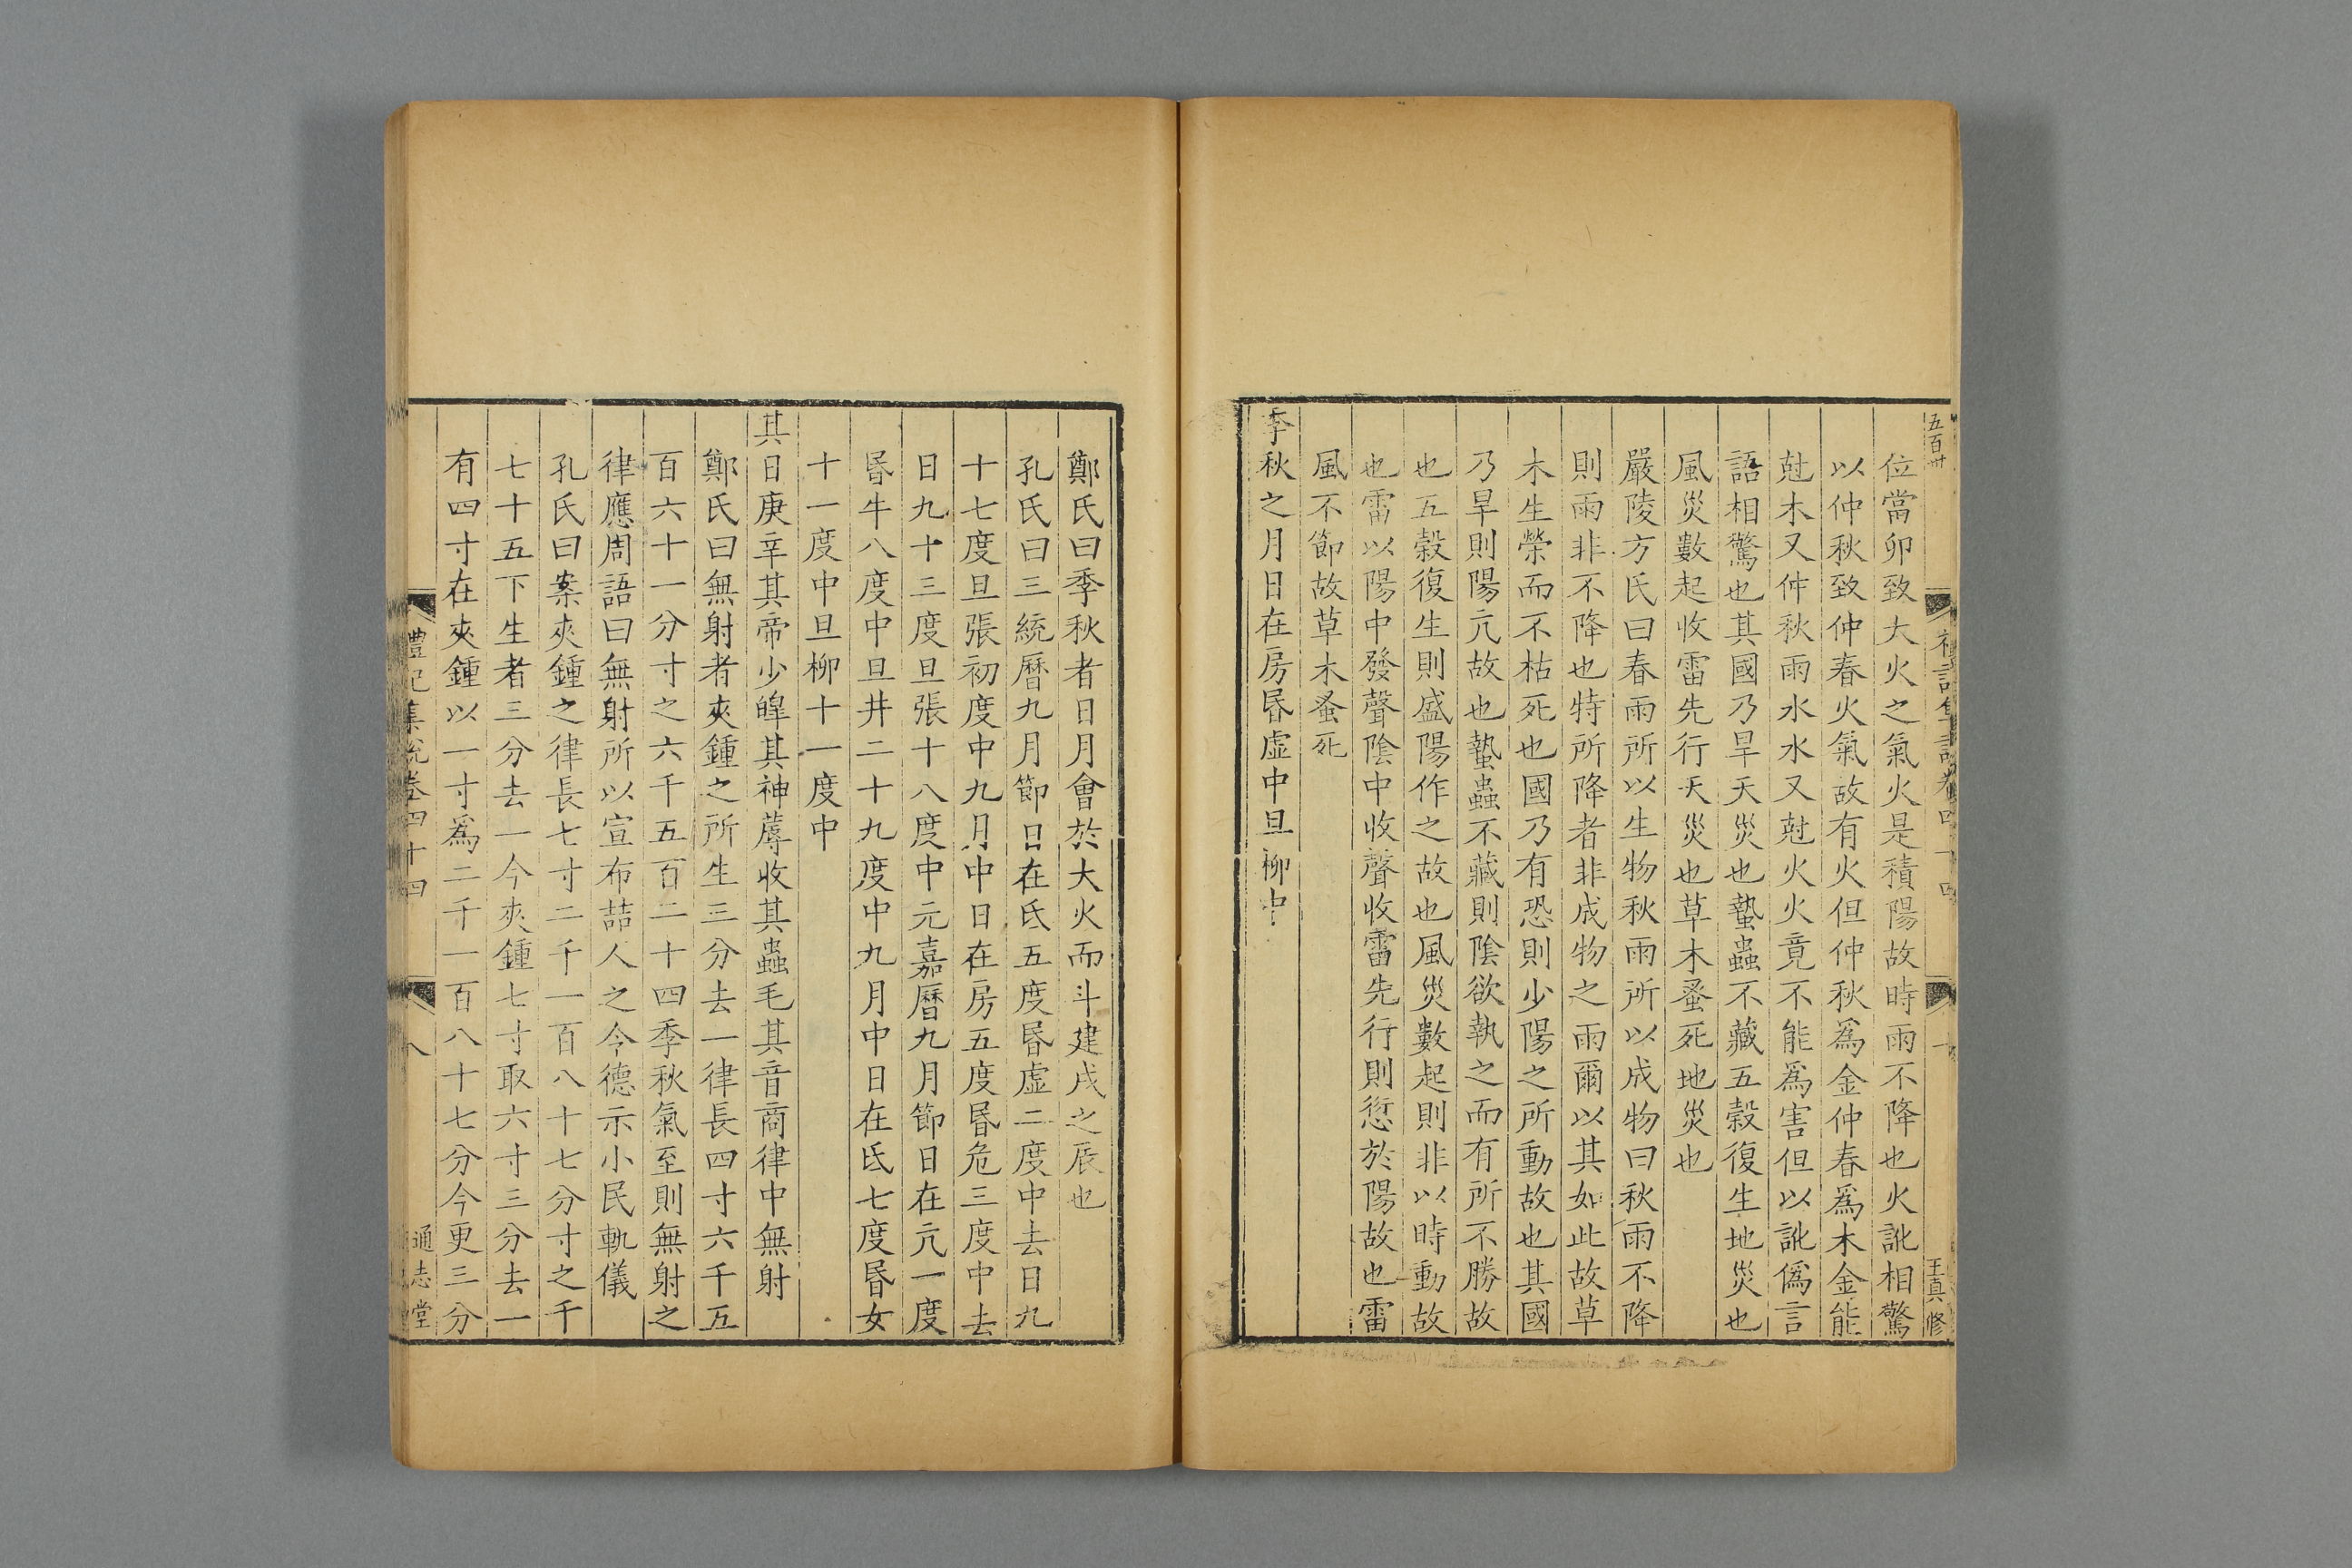 五百卅
王真修
位當卯致大火之氣火是積陽故時雨不降也火訛相驚
以仲秋致仲春火氣故有火但仲秋爲金仲春爲木金能
尅木又仲秋雨水水又尅火火竟不能爲害但以訛僞言
語相驚也其國乃旱天災也蟄蟲不藏五穀復生地災也
風災數起收雷先行天災也草木蚤死地災也
嚴陵方氏曰春雨所以生物秋雨所以成物曰秋雨不降
則雨非不降也特所降者非成物之雨爾以其如此故草
木生榮而不枯死也國乃有恐則少陽之所動故也其國
乃旱則陽亢故也蟄蟲不藏則陰欲執之而有所不勝故
也五穀復生則盛陽作之故也風災數起則非以時動故
也雷以陽中發聲陰中收聲收雷先行則愆於陽故也雷
風不節故草木蚤死
季秋之月日在房昬虛中旦柳中
鄭氏曰季秋者日月會於大火而斗建戌之辰也
孔氏曰三統曆九月節日在氐五度昬虛二度中去日九
十七度旦張初度中九月中日在房五度昬危三度中去
日九十三度旦張十八度中元嘉曆九月節日在亢一度
昬牛八度中旦井二十九度中九月中日在氐七度昬女
十一度中旦柳十一度中
其日庚辛其帝少皥其神蓐收其蟲毛其音商律中無射
鄭氏曰無射者夾鍾之所生三分去一律長四寸六千五
百六十一分寸之六千五百二十四季秋氣至則無射之
律應周語曰無射所以宣布喆人之令德示小民軌儀
孔氏曰案夾鍾之律長七寸二千一百八十七分寸之千
七十五下生者三分去一今夾鍾七寸取六寸三分去一
有四寸在夾鍾以一寸爲二千一百八十七分今更三分
禮記集說卷四十四
八
通志堂